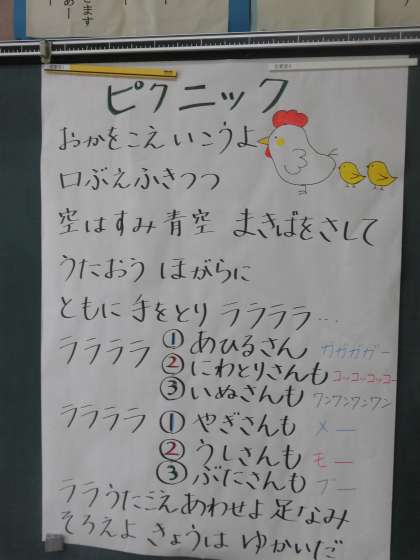 ピクニック
おかをこえ いこうよ
口ぶえふきつつ
空はすみ 青空 まきばをさして
うたおう ほがらに
ともに 手をとり ララララ…
ララララ ①あひるさん ガガガガー
②にわとりさんも コッコッコッコー
③いぬさんも ワンワンワンワン
ララララ ①やぎさんも メー
②うしさんも モー
③ぶたさんも ブー
ララうたごえあわせよ 足なみ
そろえよ きょうは ゆかいだ